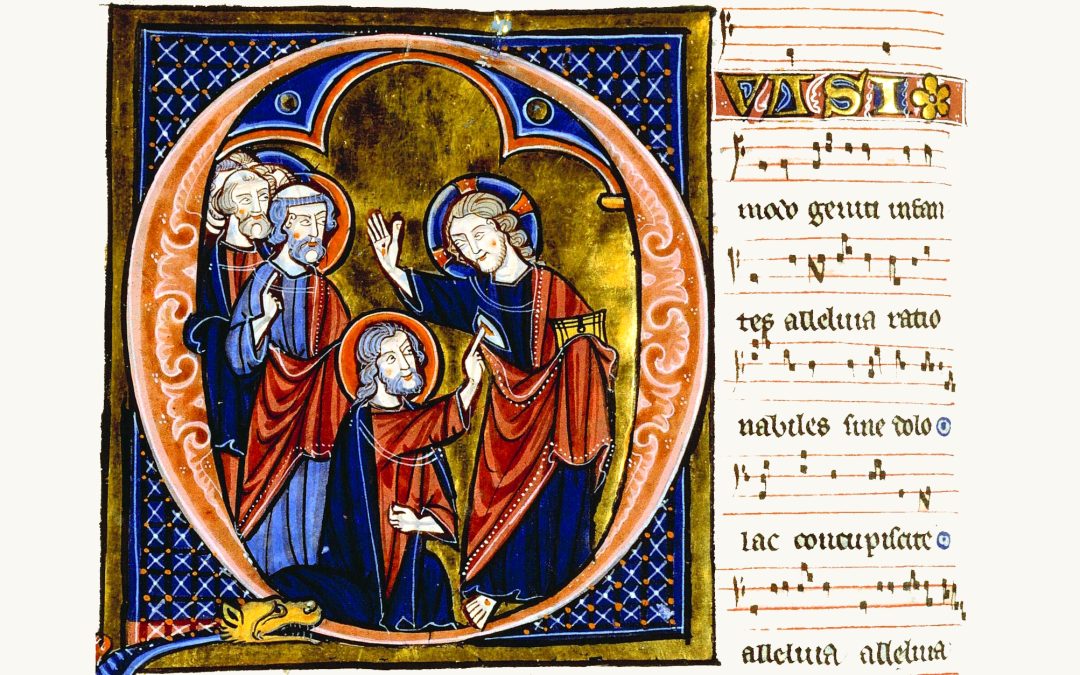 QVASI
modo geniti infan
tes alleluia ratio
nabiles sine dolo
lac concupiscite
alleluia alleluia